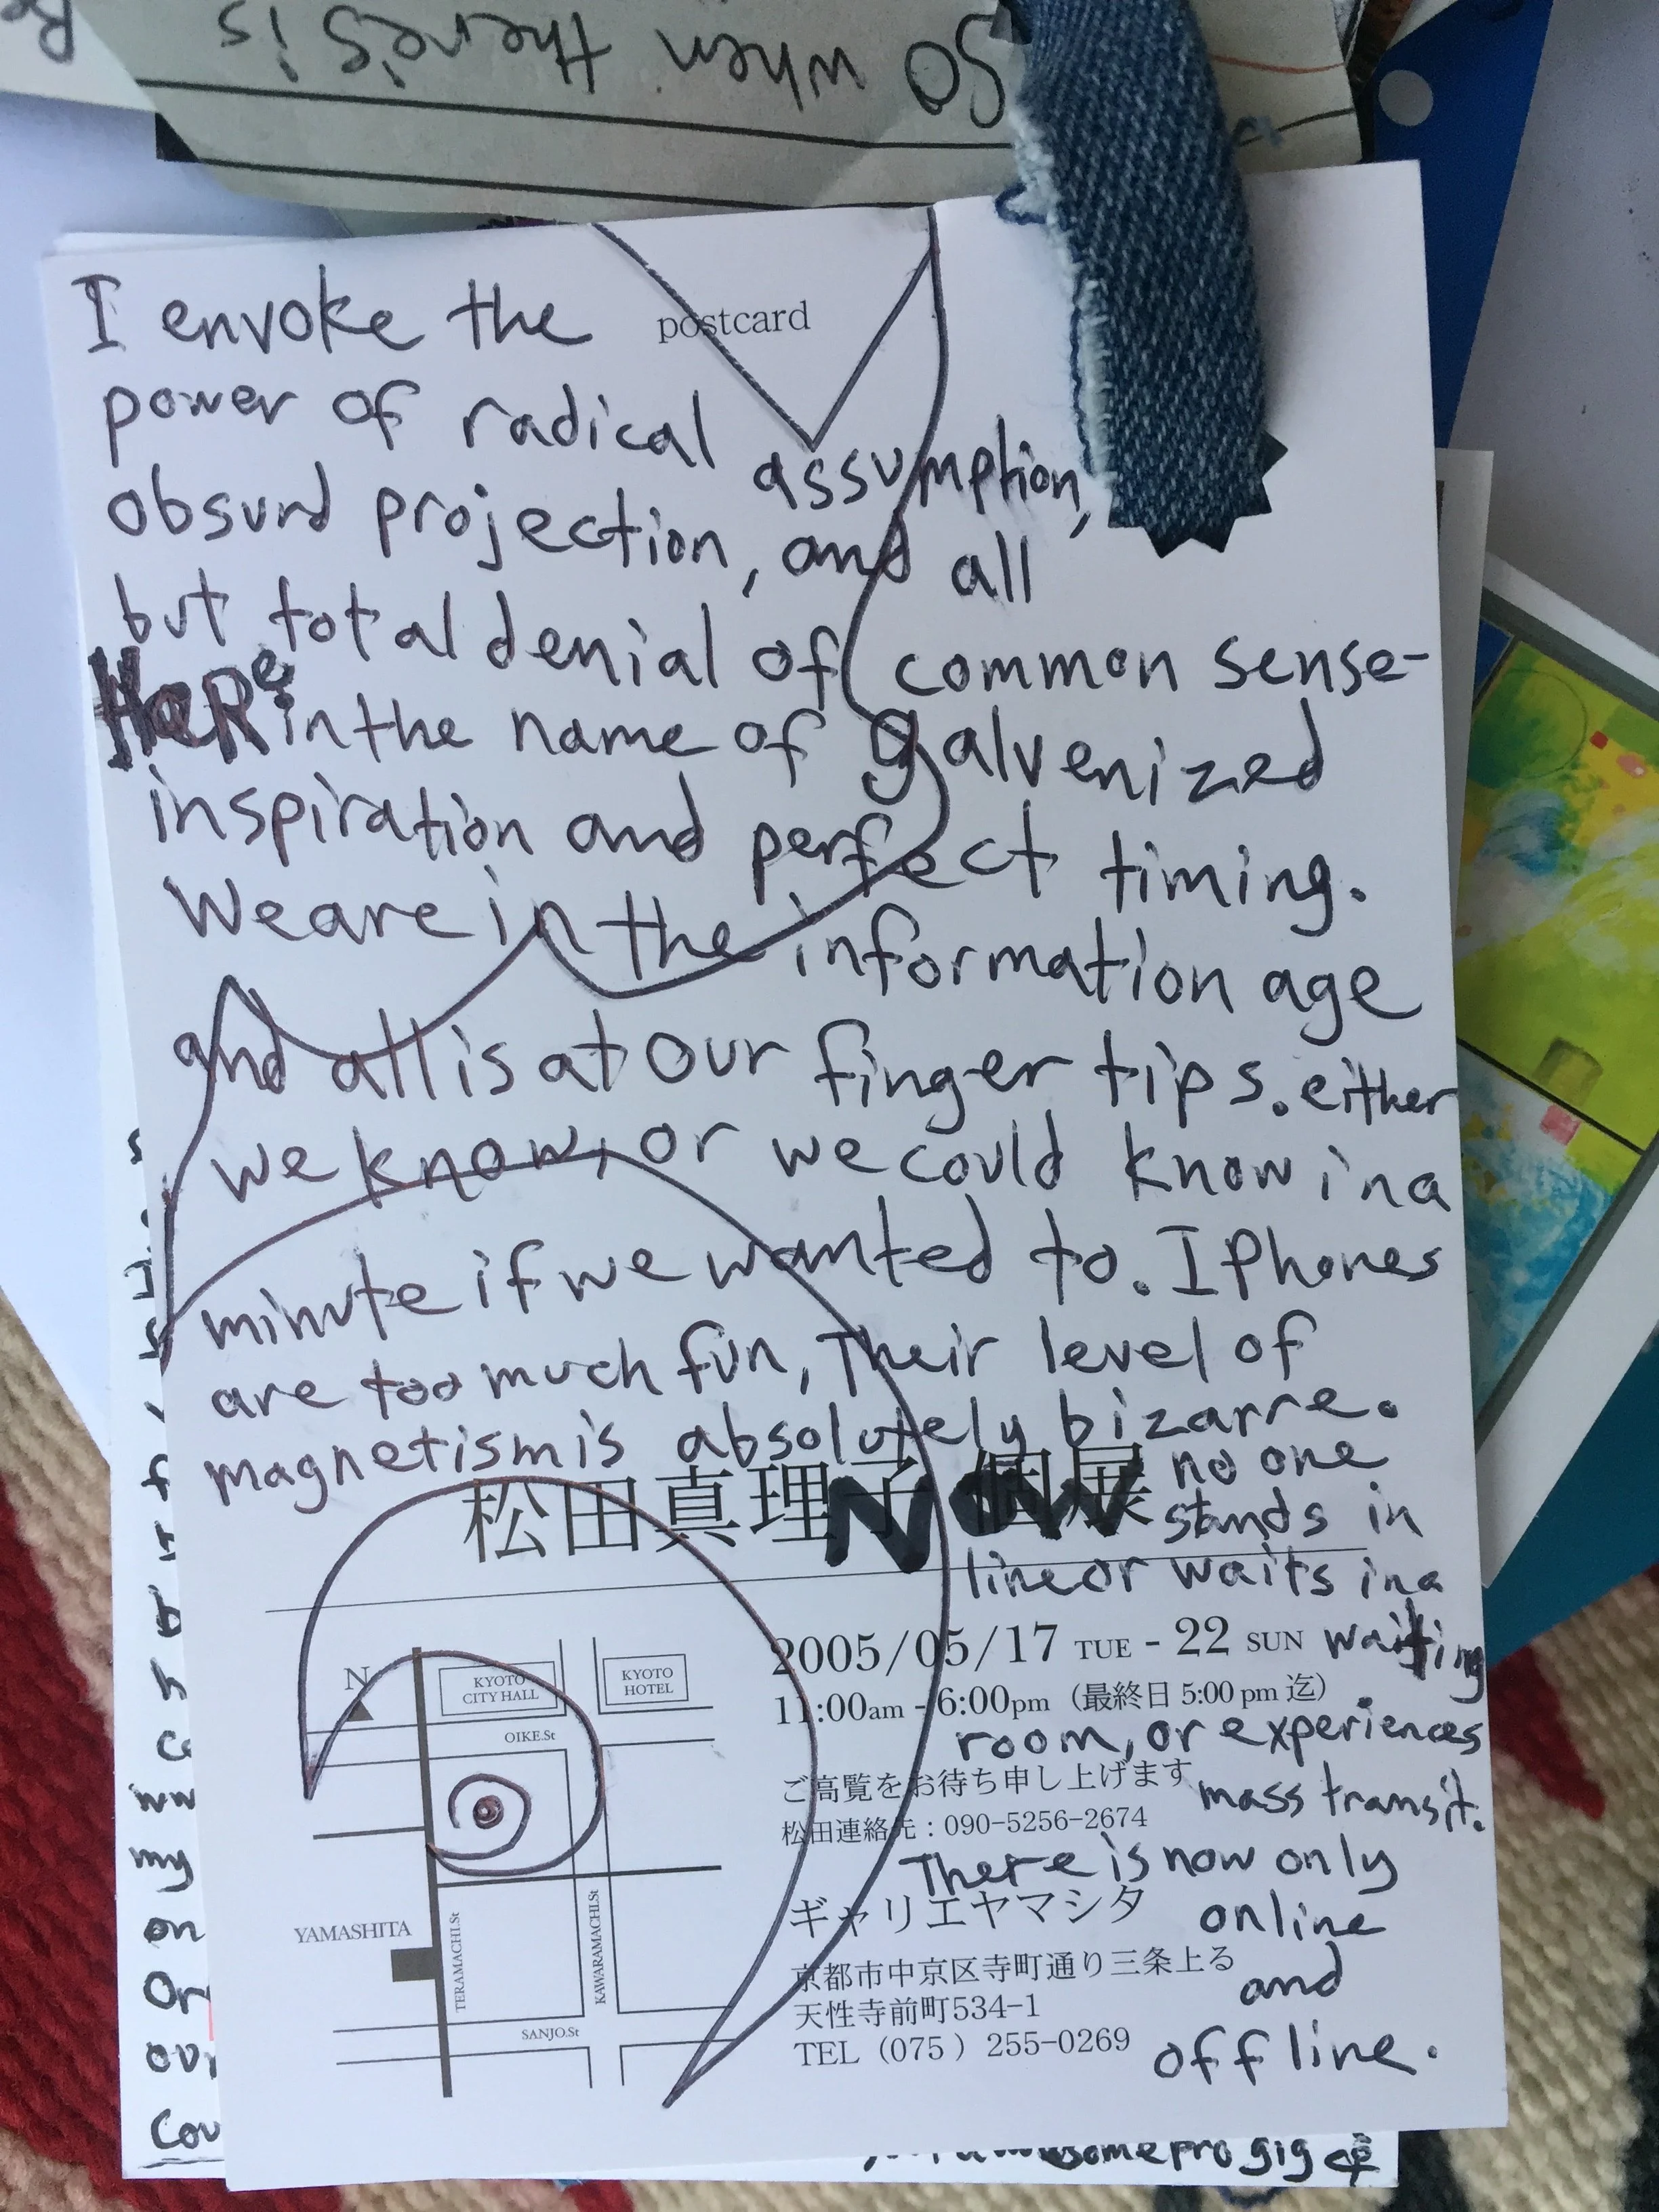 So when there's is
Re
postcard
I envoke the
power of radical assumption,
obsurd projection, and all
but total denial of common sense-
HaRe in the name of galvenized
inspiration and perfect timing.
We are in the information age
and all is at our finger tips. either
we know, or we could know in a
minute if we wanted to. I Phones
are too much fun, Their level of
magnetism is absolutely bizarre.
松田真理子 個展
NOW
no one
stands in
line or waits in a
waiting
room, or experiences
mass transit.
There is now only
online
and
offline.
2005/05/17 TUE - 22 SUN
11:00am - 6:00pm (最終日 5:00 pm 迄)
ご高覧をお待ち申し上げます
松田連絡先：090-5256-2674
ギャリエヤマシタ
京都市中京区寺町通り三条上る
天性寺前町534-1
TEL (075) 255-0269
N
KYOTO
CITY HALL
KYOTO
HOTEL
OIKE.St
YAMASHITA
TERAMACHI.St
KAWARAMACHI.St
SANJO.St
my
on
Or
our
Cou
some pro gig